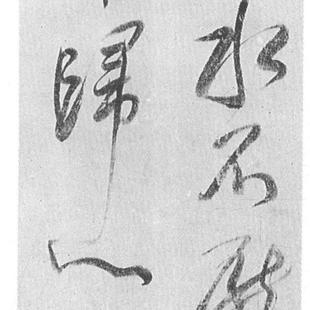 水不厭
歸心